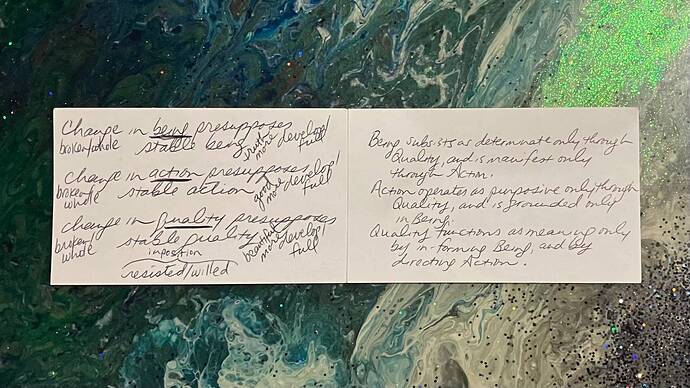 Change in being presupposes
broken/whole stable being truth more develop/full
Change in action presupposes
broken/whole stable action good more develop/full
change in quality presupposes
broken/whole stable quality beautiful more develop/full
imposition
resisted/willed
Being subsists as determinate only through
Quality, and is manifest only
through Action.
Action operates as purposive only through
Quality, and is grounded only
in Being.
Quality functions as meaning only
by in-forming Being, and by
directing Action.